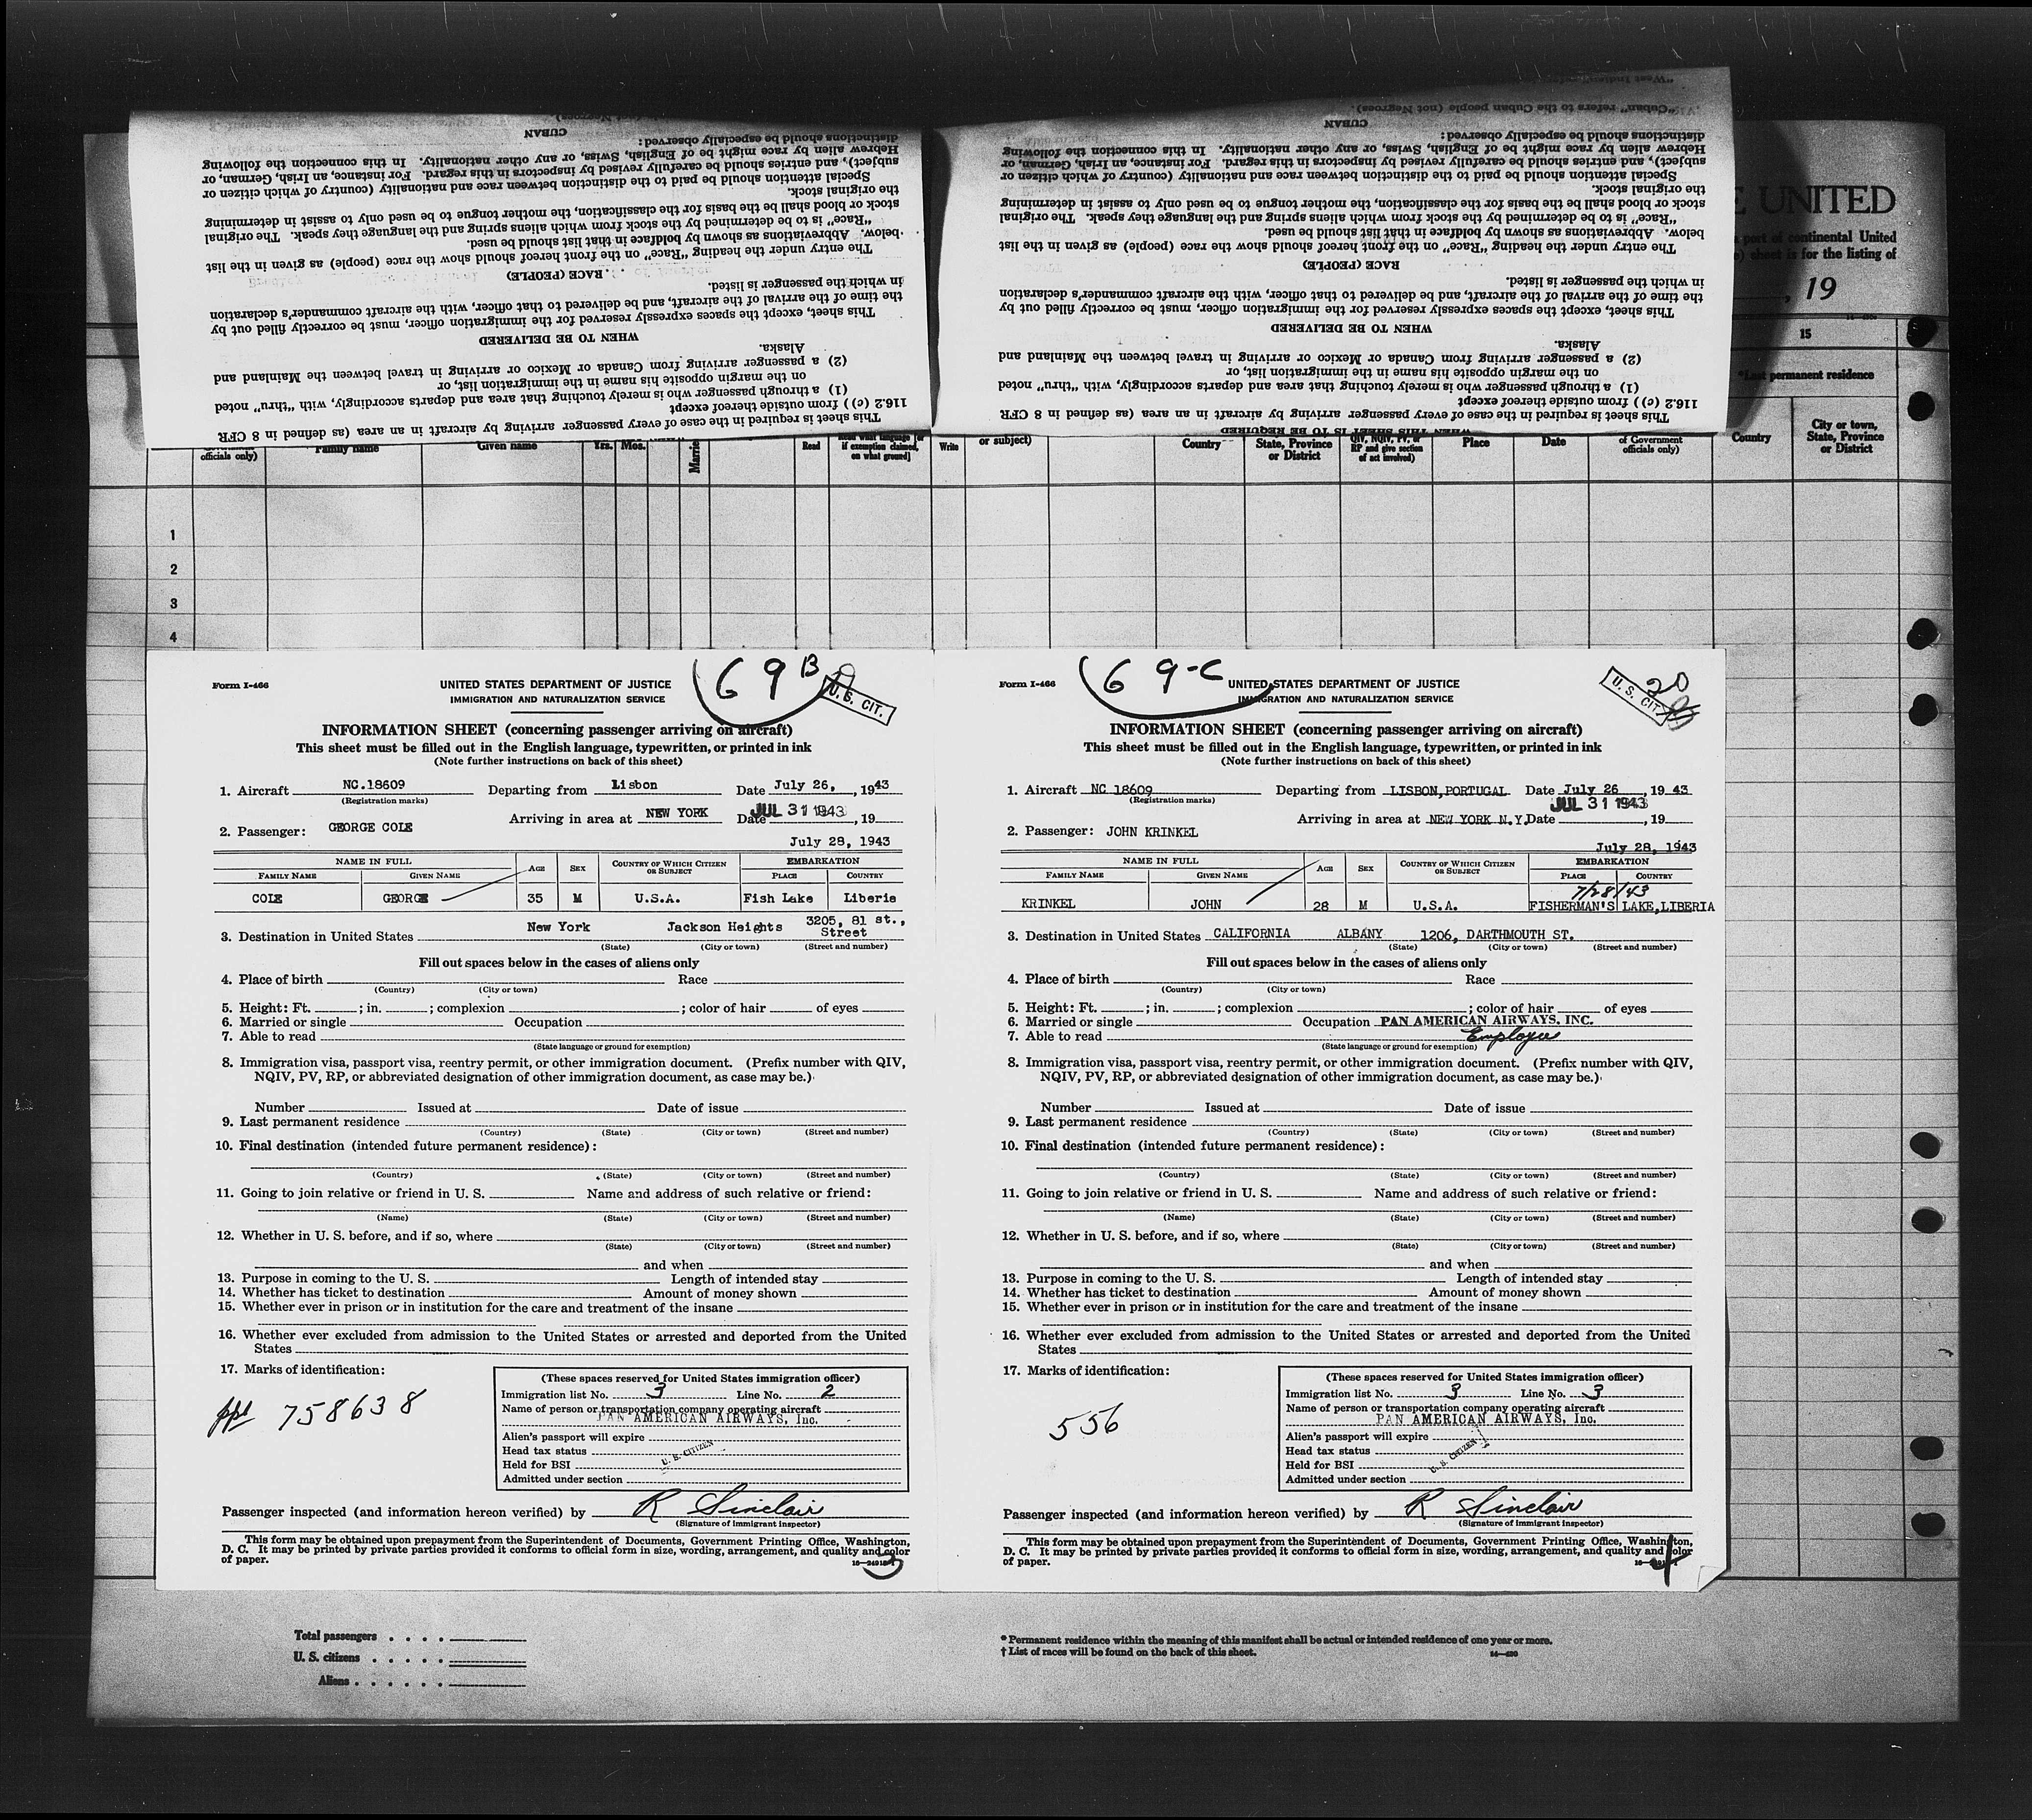 "West Indian"
"Cuban" refers to the Cuban people (not Negroes).
CUBAN
distinctions should be especially observed:
Hebrew alien by race might be of English, Swiss, or any other nationality. In this connection the following
subject), and entries should be carefully revised by inspectors in this regard. For instance, an Irish, German, or
Special attention should be paid to the distinction between race and nationality (country of which citizen or
the original stock.
stock or blood shall be the basis for the classification, the mother tongue to be used only to assist in determining
"Race" is to be determined by the stock from which aliens spring and the language they speak. The original
below. Abbreviations as shown by boldface in that list should be used.
The entry under the heading "Race" on the front hereof should show the race (people) as given in the list
RACE (PEOPLE)
in which the passenger is listed.
the time of the arrival of the aircraft, and be delivered to that officer, with the aircraft commander's declaration
This sheet, except the spaces expressly reserved for the immigration officer, must be correctly filled out by
WHEN TO BE DELIVERED
Alaska.
(2) a passenger arriving from Canada or Mexico or arriving in travel between the Mainland and
on the margin opposite his name in the immigration list, or
(1) a through passenger who is merely touching that area and departs accordingly, with "thru" noted
116.2 (c)) from outside thereof except
This sheet is required in the case of every passenger arriving by aircraft in an area (as defined in 8 CFR
CUBAN
distinctions should be especially observed:
Hebrew alien by race might be of English, Swiss, or any other nationality. In this connection the following
subject), and entries should be carefully revised by inspectors in this regard. For instance, an Irish, German, or
Special attention should be paid to the distinction between race and nationality (country of which citizen or
the original stock.
stock or blood shall be the basis for the classification, the mother tongue to be used only to assist in determining
"Race" is to be determined by the stock from which aliens spring and the language they speak. The original
below. Abbreviations as shown by boldface in that list should be used.
The entry under the heading "Race" on the front hereof should show the race (people) as given in the list
RACE (PEOPLE)
in which the passenger is listed.
the time of the arrival of the aircraft, and be delivered to that officer, with the aircraft commander's declaration
This sheet, except the spaces expressly reserved for the immigration officer, must be correctly filled out by
WHEN TO BE DELIVERED
Alaska.
(2) a passenger arriving from Canada or Mexico or arriving in travel between the Mainland and
on the margin opposite his name in the immigration list, or
(1) a through passenger who is merely touching that area and departs accordingly, with "thru" noted
116.2 (c)) from outside thereof except
This sheet is required in the case of every passenger arriving by aircraft in an area (as defined in 8 CFR
WHEN THIS SHEET IS TO BE REQUIRED
E UNITED
part of continental United
sheet is for the listing of
, 19
15
*Last permanent residence
officials only) Family name Given name Yrs. Mos. Married Read Read what language [or if exemption claimed, on what ground] Write or subject) Country State, Province or District QIV, NQIV, PV, or RP and give section of act involved) Place Date of Government officials only) Country City or town, State, Province or District
1
2
3
4
69B
U. S. CIT.
Form I-466
UNITED STATES DEPARTMENT OF JUSTICE
IMMIGRATION AND NATURALIZATION SERVICE
INFORMATION SHEET (concerning passenger arriving on aircraft)
This sheet must be filled out in the English language, typewritten, or printed in ink
(Note further instructions on back of this sheet)
1. Aircraft NC.18609 Departing from Lisbon Date July 26, , 1943
(Registration marks)
Arriving in area at NEW YORK Date JUL 31 1943, 19
2. Passenger: GEORGE COLE
July 28, 1943
NAME IN FULL AGE SEX COUNTRY OF WHICH CITIZEN OR SUBJECT EMBARKATION
FAMILY NAME GIVEN NAME PLACE COUNTRY
COLE GEORGE 35 M U.S.A. Fish Lake Liberia
3205, 81 st.,
3. Destination in United States New York Jackson Heights Street
(State) (City or town) (Street and number)
Fill out spaces below in the cases of aliens only
4. Place of birth Race
(Country) (City or town)
5. Height: Ft. ; in. ; complexion ; color of hair of eyes
6. Married or single Occupation
7. Able to read
(State language or ground for exemption)
8. Immigration visa, passport visa, reentry permit, or other immigration document. (Prefix number with QIV,
NQIV, PV, RP, or abbreviated designation of other immigration document, as case may be.)
Number Issued at Date of issue
9. Last permanent residence
(Country) (State) (City or town) (Street and number)
10. Final destination (intended future permanent residence):
(Country) (State) (City or town) (Street and number)
11. Going to join relative or friend in U. S. Name and address of such relative or friend:
(Name) (State) (City or town) (Street and number)
12. Whether in U. S. before, and if so, where
(State) (City or town) (Street and number)
and when
13. Purpose in coming to the U. S. Length of intended stay
14. Whether has ticket to destination Amount of money shown
15. Whether ever in prison or in institution for the care and treatment of the insane
16. Whether ever excluded from admission to the United States or arrested and deported from the United
States
17. Marks of identification:
ppt 758638
(These spaces reserved for United States immigration officer)
Immigration list No. 3 Line No. 2
Name of person or transportation company operating aircraft
PAN AMERICAN AIRWAYS, Inc.
Alien's passport will expire
Head tax status U. S. CITIZEN
Held for BSI
Admitted under section
Passenger inspected (and information hereon verified) by R Sinclair
(Signature of immigrant inspector)
This form may be obtained upon prepayment from the Superintendent of Documents, Government Printing Office, Washington,
D. C. It may be printed by private parties provided it conforms to official form in size, wording, arrangement, and quality and color
of paper.
3
69-C
U. S. CIT.
20
Form I-466
UNITED STATES DEPARTMENT OF JUSTICE
IMMIGRATION AND NATURALIZATION SERVICE
INFORMATION SHEET (concerning passenger arriving on aircraft)
This sheet must be filled out in the English language, typewritten, or printed in ink
(Note further instructions on back of this sheet)
1. Aircraft NC 18609 Departing from LISBON,PORTUGAL Date July 26 , 19 43
(Registration marks)
JUL 31 1943
Arriving in area at NEW YORK N.Y. Date , 19
2. Passenger: JOHN KRINKEL
July 28, 1943
NAME IN FULL AGE SEX COUNTRY OF WHICH CITIZEN OR SUBJECT EMBARKATION
FAMILY NAME GIVEN NAME PLACE COUNTRY
7/28/43
KRINKEL JOHN 28 M U.S.A. FISHERMAN'S LAKE,LIBERIA
3. Destination in United States CALIFORNIA ALBANY 1206, DARTHMOUTH ST.
(State) (City or town) (Street and number)
Fill out spaces below in the cases of aliens only
4. Place of birth Race
(Country) (City or town)
5. Height: Ft. ; in. ; complexion ; color of hair of eyes
6. Married or single Occupation PAN AMERICAN AIRWAYS, INC.
7. Able to read Employee
(State language or ground for exemption)
8. Immigration visa, passport visa, reentry permit, or other immigration document. (Prefix number with QIV,
NQIV, PV, RP, or abbreviated designation of other immigration document, as case may be.)
Number Issued at Date of issue
9. Last permanent residence
(Country) (State) (City or town) (Street and number)
10. Final destination (intended future permanent residence):
(Country) (State) (City or town) (Street and number)
11. Going to join relative or friend in U. S. Name and address of such relative or friend:
(Name) (State) (City or town) (Street and number)
12. Whether in U. S. before, and if so, where
(State) (City or town) (Street and number)
and when
13. Purpose in coming to the U. S. Length of intended stay
14. Whether has ticket to destination Amount of money shown
15. Whether ever in prison or in institution for the care and treatment of the insane
16. Whether ever excluded from admission to the United States or arrested and deported from the United
States
17. Marks of identification:
556
(These spaces reserved for United States immigration officer)
Immigration list No. 3 Line No. 3
Name of person or transportation company operating aircraft
PAN AMERICAN AIRWAYS, Inc.
Alien's passport will expire
Head tax status U. S. CITIZEN
Held for BSI
Admitted under section
Passenger inspected (and information hereon verified) by R Sinclair
(Signature of immigrant inspector)
This form may be obtained upon prepayment from the Superintendent of Documents, Government Printing Office, Washington,
D. C. It may be printed by private parties provided it conforms to official form in size, wording, arrangement, and quality and color
of paper.
4
Total passengers
U. S. citizens
Aliens
* Permanent residence within the meaning of this manifest shall be actual or intended residence of one year or more.
† List of races will be found on the back of this sheet.